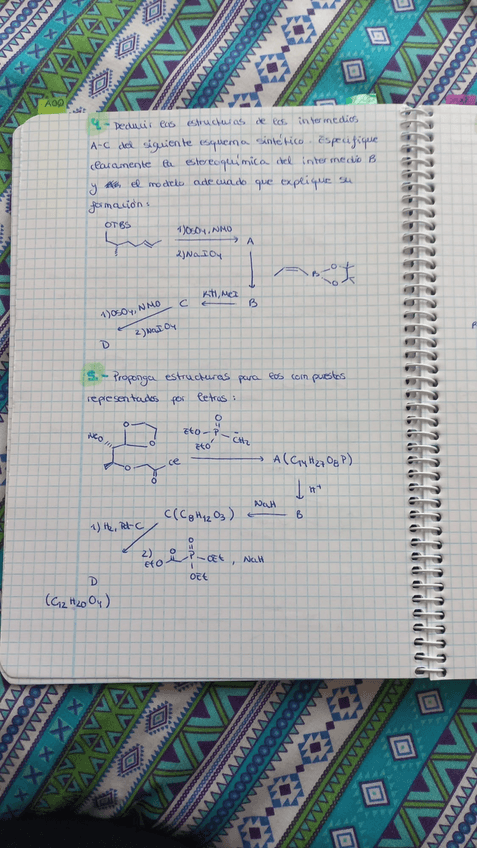 AOQ
4.- Deducir las estructuras de los intermedios
A-C del siguiente esquema sintético. Especifique
claramente la estereoquímica del intermedio B
y el modelo adecuado que explique su
formación:
OTBS
1) OsO4, NMO
2) NaIO4
A
B
O
O
1) OsO4, NMO
2) NaIO4
C
KH, MeI
B
D
5.- Proponga estructuras para los compuestos
representados por letras:
O
O
MeO
O
O
EtO
P
EtO
O
CH2
A (C14H27O8P)
H+
B
NaH
C (C8H12O3)
1) H2, Pd-C
2)
EtO
O
O
P
OEt
OEt
, NaH
D
(C12H20O4)